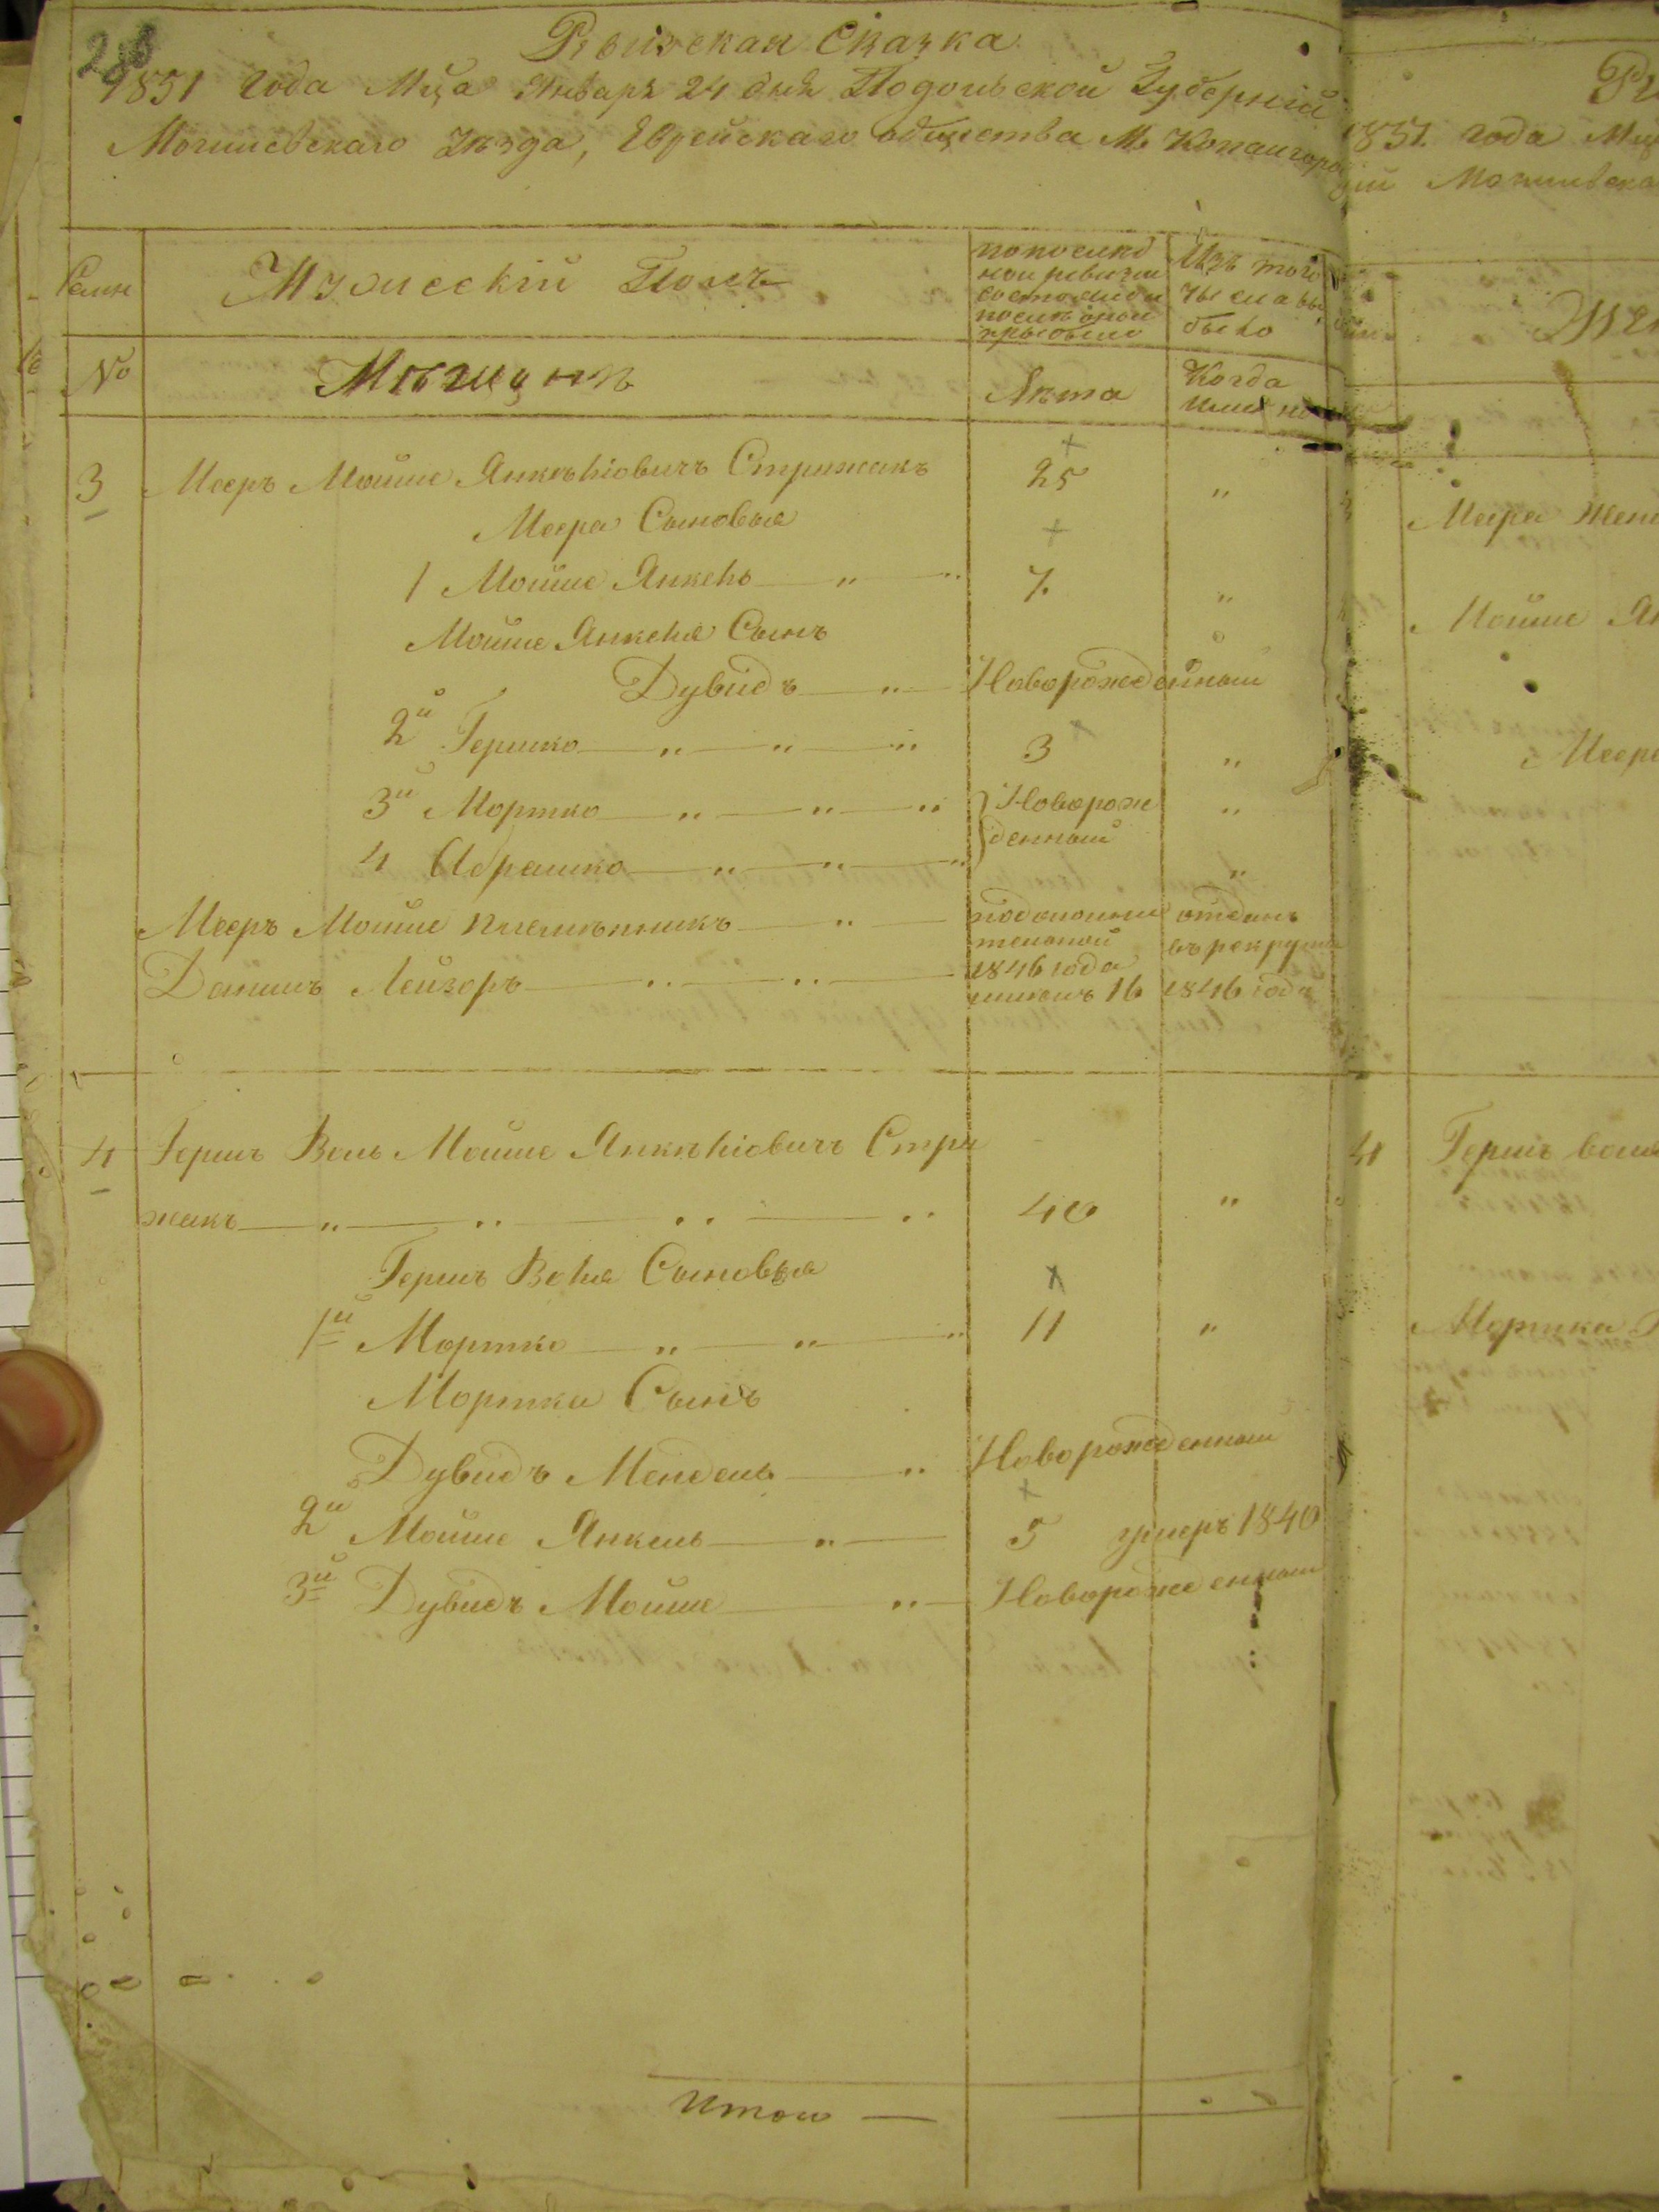 286
Ревизская Сказка
1851 года Мца Января 24 дня Подольской Губерніи
Могилевского Уѣзда, Еврейскаго общества М. Копайгоро
Семи
Мужескій Полъ
по послѣд
ней ревизіи
состояло и
послѣ оной
прибыло
Изъ того
числа вы
было
№
Мѣщанъ
Лѣта
Когда
имен но
3 Мееръ Мойше Янкелiовичъ Стрижакъ 25 "
Меера Сыновья
1 Мойше Янкель " " 7. "
Мойше Янкеля Сынъ
Дувидъ " Новорожденный
2й Гершко " " " 3 "
3й Мортко " " " Новорож "
денный
4 Абрашко " " " "
Мееръ Мойше племѣнникъ "
Данилъ Лейзоръ " "
1846 года
16
отданъ
въ рекруты
1846 года
4 Гершъ Воль Мойше Янкелiовичъ Стри
жакъ " " " " 40 "
Гершъ Воля Сыновья
1й Мортко " " " 11 "
Мортка Сынъ
Дувидъ Мендель " Новорожденный
2й Мойше Янкель " 5 умеръ 1840
3й Дувидъ Мойше " Новорожденный
Итого
1851 года Мца
Могилевска
Жен
Меера Жена
Мойше Ян
Меера
4 Гершъ воля
Мортка